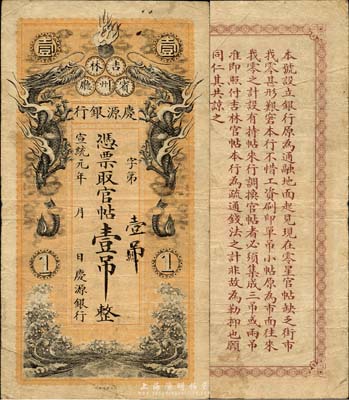 壹
壹
吉林
賓州廳
慶源銀行
字第
壹吊
憑票取官帖壹吊整
宣統元年 月 日慶源銀行
1
1
本號設立銀行原為通融地面起見現在零星官帖缺乏街市
我零甚形艱窘本行不惜工資刷印單吊小帖原為市面往來
我零之計設有持帖來行調換官帖者必須集成三吊或兩吊
准即照付吉林官帖本行為疏通錢法之計非故為勒抑也願
同仁其共諒之